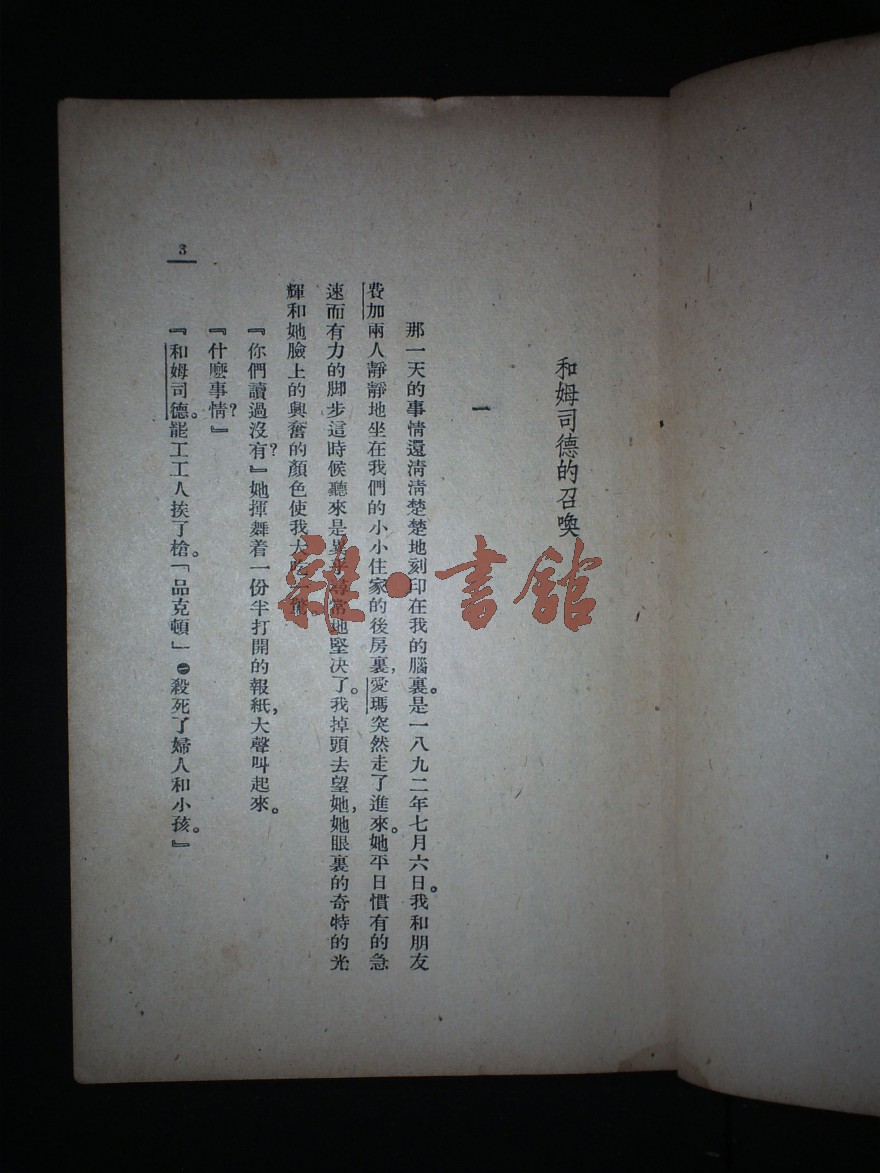 和姆司德的召喚
一
那一天的事情還淸淸楚楚地刻印在我的腦裏。是一八九二年七月六日。我和朋友
費加兩人靜靜地坐在我們的小小住家的後房裏,愛瑪突然走了進來。她平日慣有的急
速而有力的脚步這時候聽來是異乎尋常地堅决了。我掉頭去望她,她眼裏的奇特的光
輝和她臉上的興奮的顏色使我大吃一驚。
『你們讀過沒有?』她揮舞着一份半打開的報紙,大聲叫起來。
『什麼事情?』
『和姆司德。罷工工人挨了槍。「品克頓」㊀殺死了婦人和小孩。』
3
雜·書館